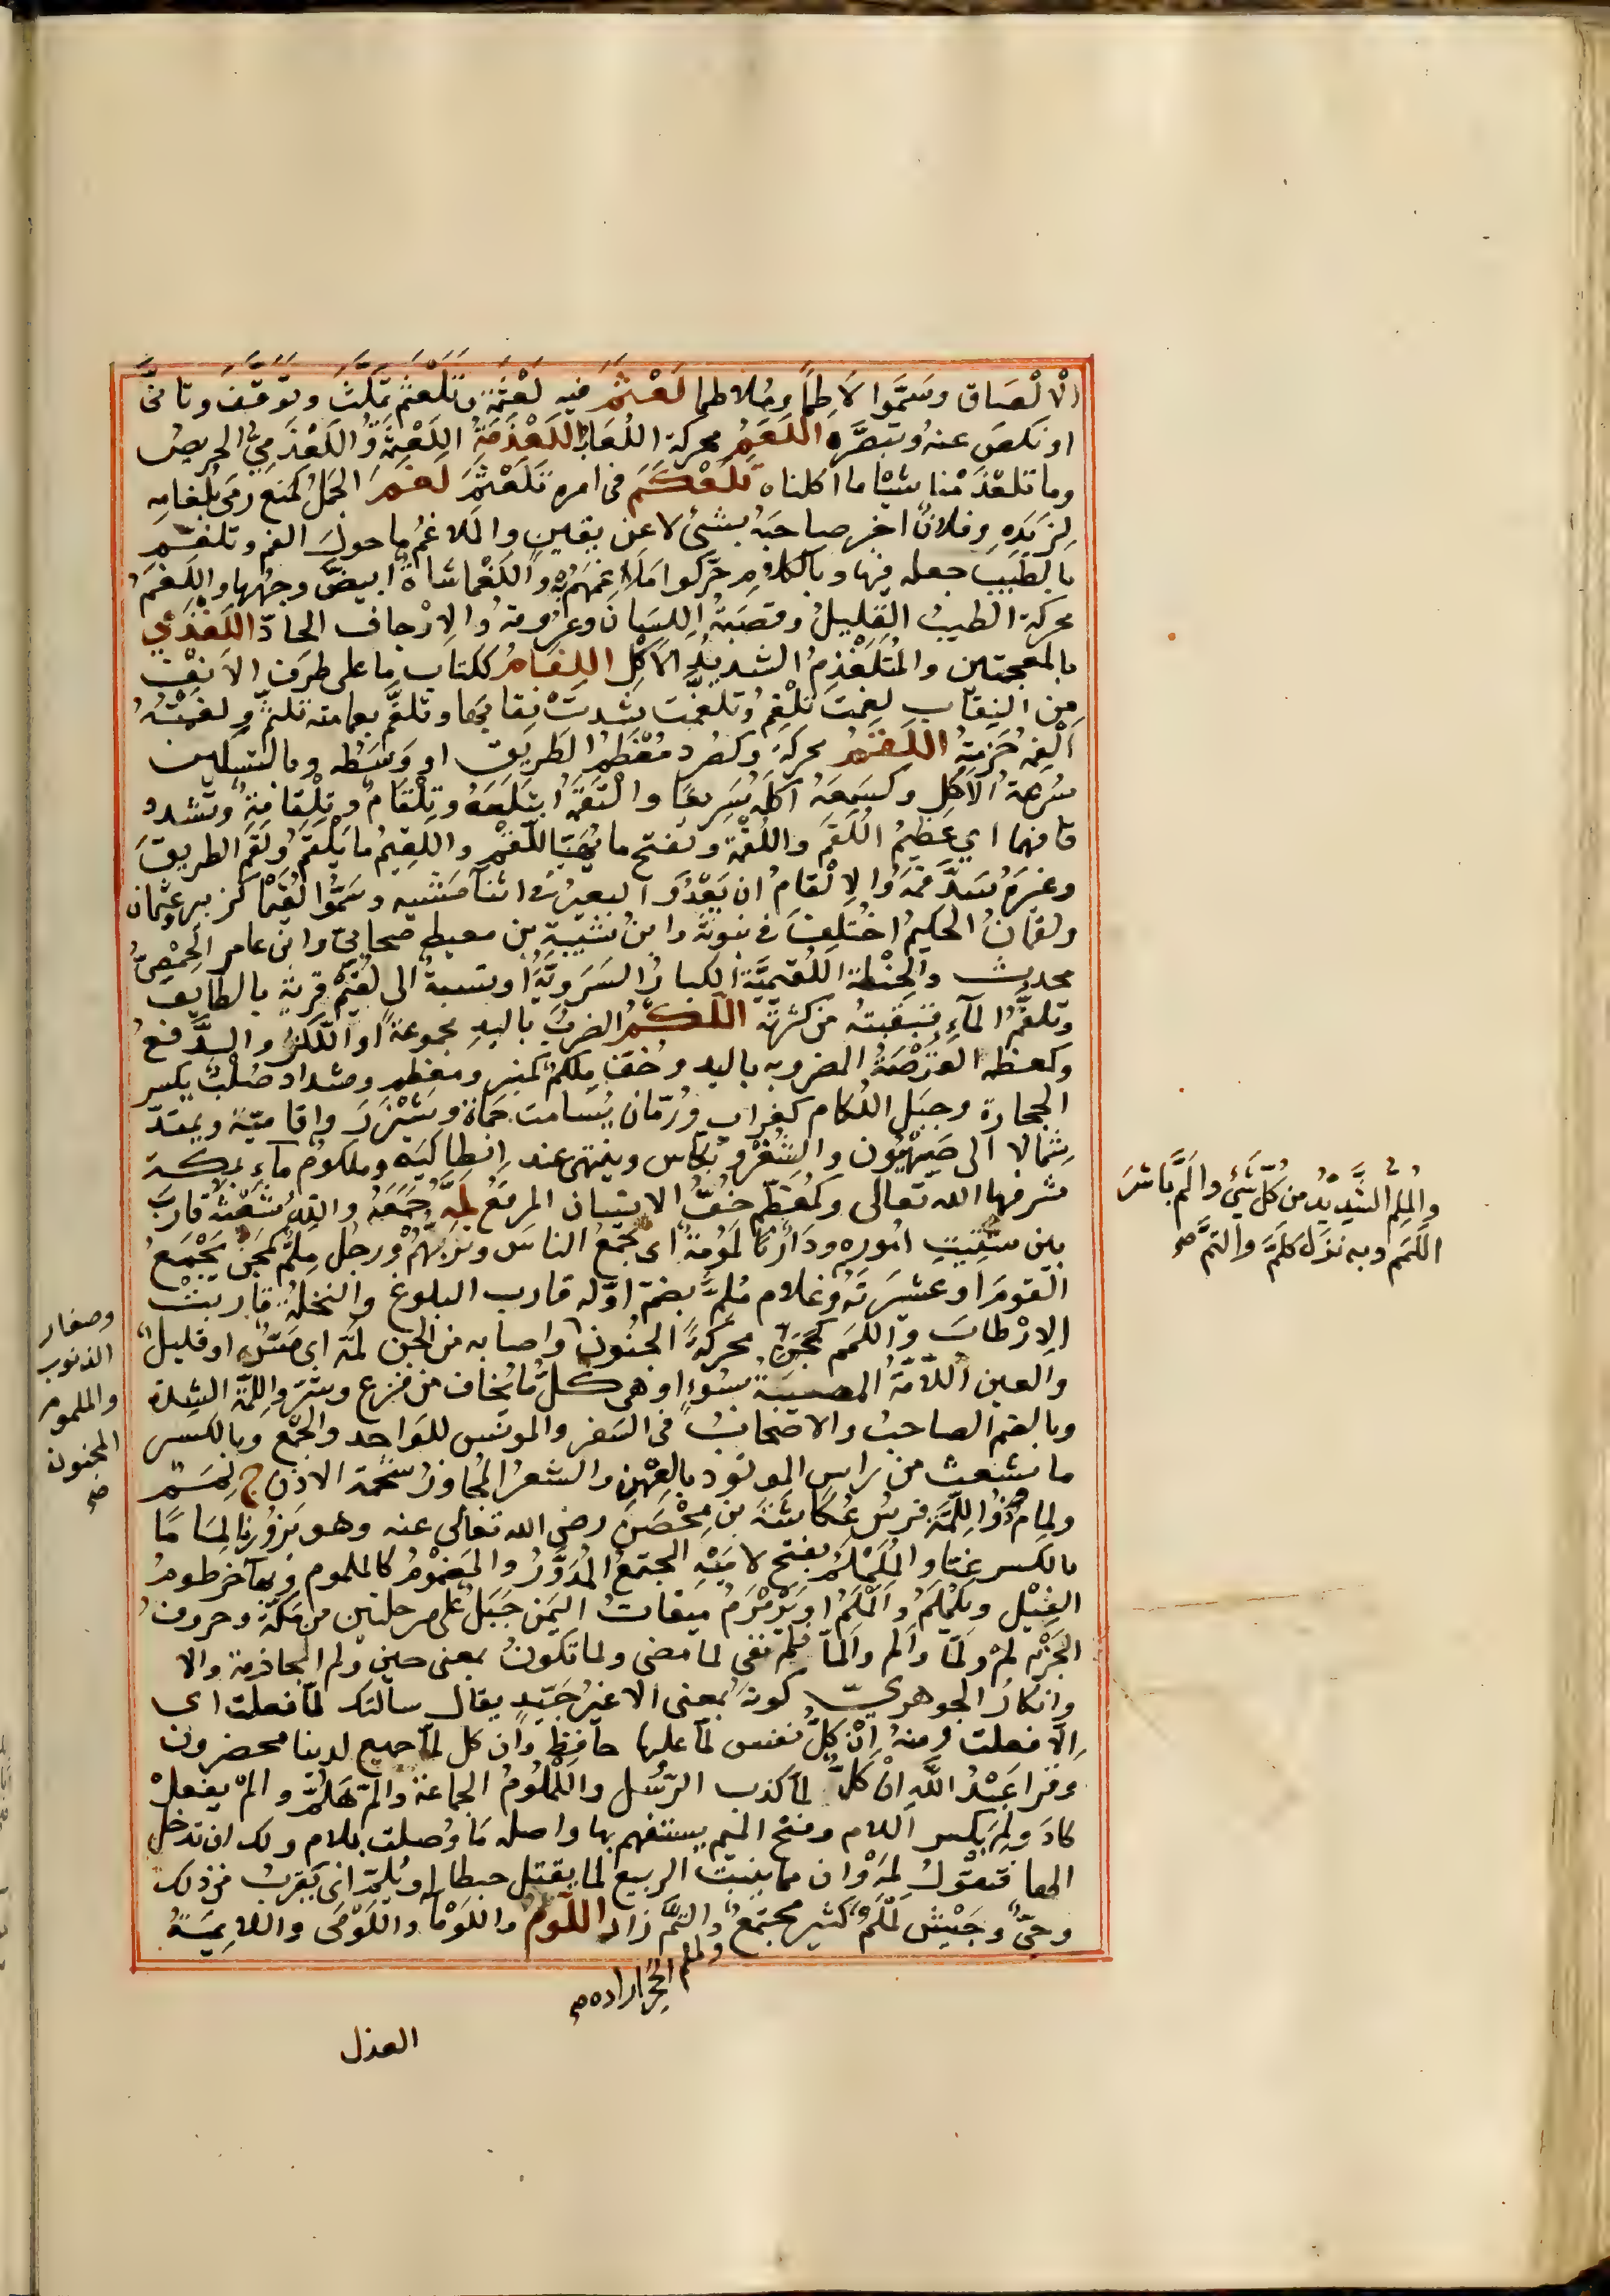 الالْصَاق وسَمَّوا لاطِماً وملاطما لَعْثَمَ فيه لَعْثَمَةً وتَلَعْثَمَ تمكَّثَ وتوَقَّفَ وتأنَّى
او نكصَ عنهُ وتبصَّره اللَّعَمُ محركة اللُعَابُ اللَّعْذَمَةُ اللَّعْثَمَةُ واللَّعْذَمِيُّ الحريصُ
وما تلعْذَمْنا شيْأ ما اكلناه تَلَعْكَمَ فى امره تَلَعْثَمَ لَغَمَ الجَمَلُ كمنع رمَى بلُغامِه
لِزَبَدِهِ وفلانٌ اخبر صاحبَهُ بشئ لا عن يقين والملاغمُ ما حولَ الفم وتلغّم
بالطيبِ جعله فيها وبالكلامِ حرَّكوا مَلاغِمَهُمْ به واللَّغْما شاةٌ ابيضَّ وجهُها واللَّغَمُ
محركة الطيبُ القليلُ وقصَبَةُ اللِسَان وعُرُوقهُ والارْجاف الحادّ اللَّغْذَمِي
بالمعجمتين والمُتَلَغْذِمُ الشديدُ الأكْلِ اللِفَامُ ككتاب ما على طرَف الانْفِ
مِن النِقابِ لفمَت تلْفِمُ وتلفَّمَت شدتْ نِقابَها وتلفَّم بعمامته تلثمَّ ولفَمْتُهُ
الْفِمُه حَزَمتهُ اللَّقَمُ محركةً وكصُرد مُعْظَمُ الطريق او وَسَطُه وبالتسكين
سُرعةُ الأكل وكسَمِعَهُ اكلَهُ سَريعًا والْتَقَمَهُ ابتلَعَهُ وتِلْقَامٌ وتِلْقامَةٌ وتشدد
قافهما اي عظيمُ اللُقَم واللُّقْمَة وتفتح ما يُهَيَّأ للّقْم واللقِيمُ ما يُلْقَمُ ولَقَم الطريقَ
وغيرَهُ سَدَّ فمَهُ والالْقامُ ان يَعْدُوَ البعيرُ فى اثنآ مَشْيِه وسَمَّوا لُقَيْمًا كزبير وعثمان
ولقمانُ الحكيمُ اخْتُلِفَ فى نبوته وابنُ شيبة بن معيط صحابيّ وابن عامر الحِمْصيُّ
محدث والحِنْطة اللُّقَيْمِيَّة الكبارُ السَرَويَّة او نسبة الى لُقَيْم قرية بالطايف
وتلقَّم الماءِ قبقبته من كثرته اللَّكْمُ الضربُ باليدِ مجموعةً او اللّكْزُ والدَّفعُ
وكمعظمة القُرْصَةُ المضروبة باليد وخُفّ مِلْكَمٌ كمنبر ومعظم وشداد صُلْبٌ يكسر
الحجارة وجبَل اللُكام كغراب ورُمّان يُسامت حَماة وشَيْزَرَ وافاميّة ويمتدّ
شمالا الى صَهْيُون والشُغْر وبكاس وينتهى عند انطاكية وملكومٌ مآء بمكة
شرفها الله تعالى وكمُعَظَّم خفُّ الانسان المرقع لمَّه جَمَعَهُ واللهُ شَعْثَه قاربَ
بين شتيتِ امُوره ودارُنا لمُومَةٌ اى تجمعُ الناس وتَرُبُّهُمْ ورجُل مِلَمٌّ كمِجَنّ يَجْمَعُ
القومَ او عشيرَتَهُ وغلام مُلِمٌّ بضمّ اوّله قارب البلوغ والنخلَةُ قاربتْ
الارْطابَ واللمَمُ محرّكةً الجنُون واصابه من الجنّ لمّة اى مَسٌّ او قليلٌ
والعين اللامّةُ المصيبَةُ بسُوءٍ او هى كلّ ما يُخاف من فزع وشَرّ واللِمّة الشِدّة
وبالضم الصاحبُ والاصْحابُ فى السَفر والمونس للواحد والجمْع وبالكسر
ما تشعث من راس الموتود بالفِهْر والشعرُ المُجاوزُ شحمة الاذن ج لِمَمٌ
ولمام وذُو اللِّمَّة فرسُ عُكاشَةَ بن مِحْصَن رضى الله تعالى عنه وهو يَزُورُنا لِمَامًا
بالكسر غِبّا والمُلَمْلَمُ بفتح لاميْه المجتمعُ المُدَوَّرُ والمضمُومُ كالملموم وبهآء خرطومُ
الفِيْل ويَلَمْلَمُ وألَمْلَمُ او يَرَمْرَمُ ميقاتُ اليَمن جَبَلٌ على مرحلتين من مكّة وحروفُ
الجَزْم لمْ ولمّا والم والمّا فلم نفى لما مضى ولما تكونُ بمعنى حين ولم الجازمة والا
وانكارُ الجوهريّ كونهُ بمعنى الا غيرُ جَيّدٍ يقال سالتك لمّا فعلت اى
الّا فعلت ومنهُ اِنْ كلُّ نفس لمّا عليها حافظ وان كل لمّا جميع لدينا محضرون
وقرا عَبْدُ اللهِ انْ كلٌّ لمّا كذب الرّسُل واللُّمْلُومُ الجماعة والمّ بهَلُمّ والمْ يفعلْ
كادَ ولِمَ بكسر اللام وفتح الميم يستفهم بها واصله مَا وُصلت بلام ولك ان تدخل
الهآ فتقولُ لمَهْ وان مما ينبتُ الربيع لما يقتل حبطا او يُلِمّ اى يَقرُبُ من ذلك
وحىٌّ وجَيْش لَمْلَمٌ كثير مجتمعٌ والتمَّ زار اللَّومُ واللَوْمآ واللَوْمَى واللائمَةُ
ولملم الحَجَرَ اداره صح
العذل
والمُلِمُّ الشَديدُ من كلّ شئ والمَّ باشَرَ
اللمَم وبه نزَل كلَمَّ والتمّ صح
وصغار
الذنوب
والملموم
المجنون
صح